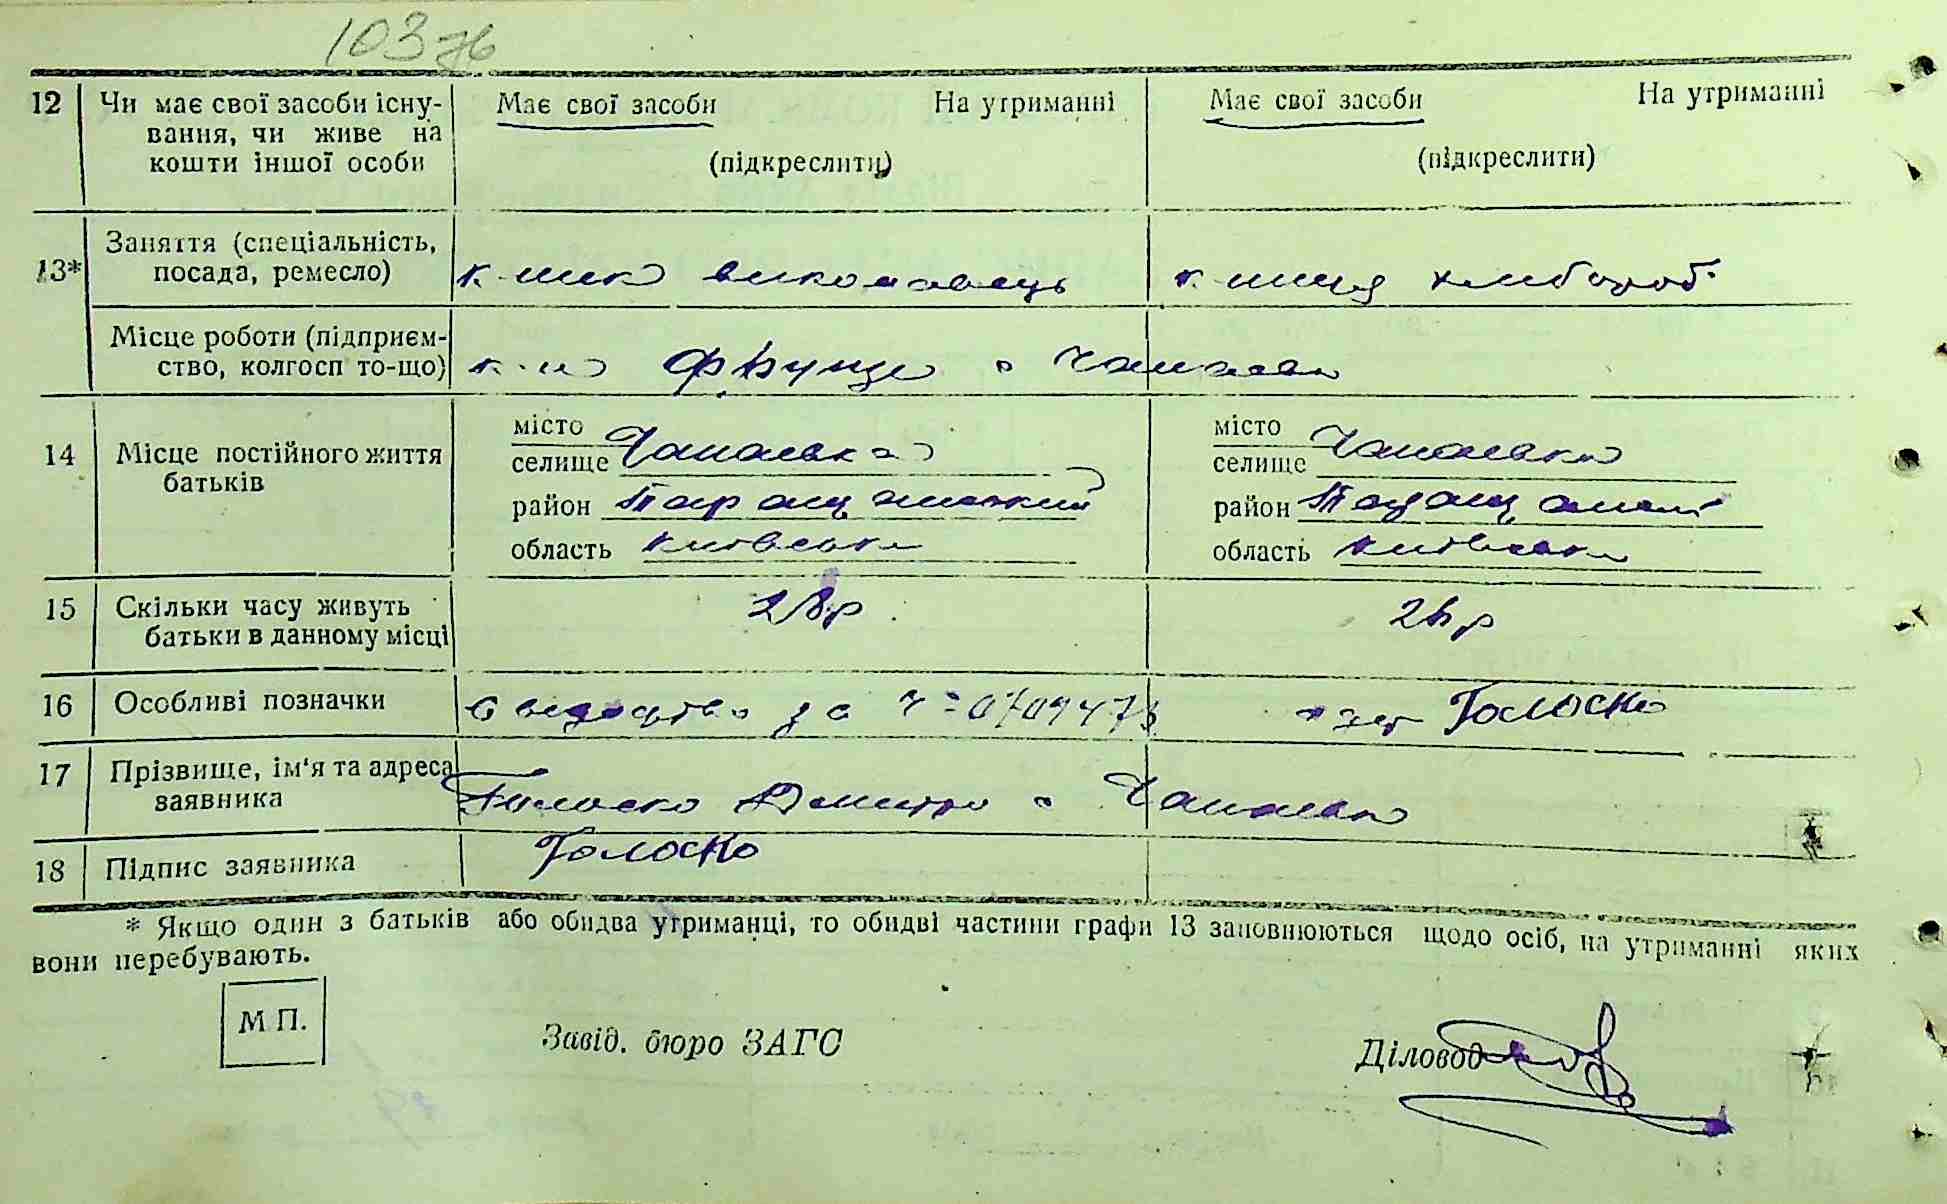 103 зв
12 Чи має свої засоби існу- Має свої засоби На утриманні Має свої засоби На утриманні
вання, чи живе на
кошти іншої особи (підкреслити) (підкреслити)
13* Заняття (спеціальність,
посада, ремесло) к-ник виконавець к-ниця хлібороб
Місце роботи (підприєм-
ство, колгосп то-що) к-п Фрунзе с Чапаєвка
14 Місце постійного життя
батьків
місто
селище Чапаєвка
район Таращанський
область Київська
місто
селище Чапаєвка
район Таращанський
область Київська
15 Скільки часу живуть
батьки в данному місці 28 р 26 р
16 Особливі позначки Свидоцтво за Голоско
17 Прізвище, ім'я та адреса
заявника Голоско Дмитро с Чапаєвка
18 Підпис заявника Голоско
* Якщо один з батьків або обидва утриманці, то обидві частини графи 13 заповнюються щодо осіб, на утриманні яких
вони перебувають.
М П.
Завід. бюро ЗАГС
Діловод